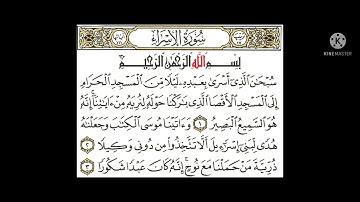 سُورَةُ الْإِسْرَاءِ
بِسْمِ اللَّهِ الرَّحْمَٰنِ الرَّحِيمِ
سُبْحَٰنَ الَّذِي أَسْرَىٰ بِعَبْدِهِ لَيْلًا مِّنَ الْمَسْجِدِ الْحَرَامِ
إِلَى الْمَسْجِدِ الْأَقْصَا الَّذِي بَٰرَكْنَا حَوْلَهُ لِنُرِيَهُ مِنْ ءَايَٰتِنَا إِنَّهُ
هُوَ السَّمِيعُ الْبَصِيرُ ١ وَءَاتَيْنَا مُوسَى الْكِتَٰبَ وَجَعَلْنَٰهُ
هُدًى لِّبَنِي إِسْرَٰٓءِيلَ أَلَّا تَتَّخِذُوا مِن دُونِي وَكِيلًا ٢
ذُرِّيَّةَ مَنْ حَمَلْنَا مَعَ نُوحٍ إِنَّهُ كَانَ عَبْدًا شَكُورًا ٣
MADE WITH
KINEMASTER